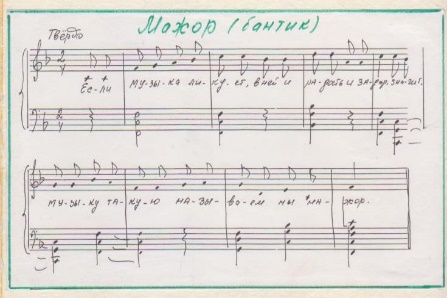 Мажор (бантик)
Твёрдо
Ес-ли му-зы-ка ли-ку-ет, в ней и ра-дость и за-дор. Зна-чит.
му-зы-ку та-ку-ю на-зы-ва-ем мы "ма-жор.